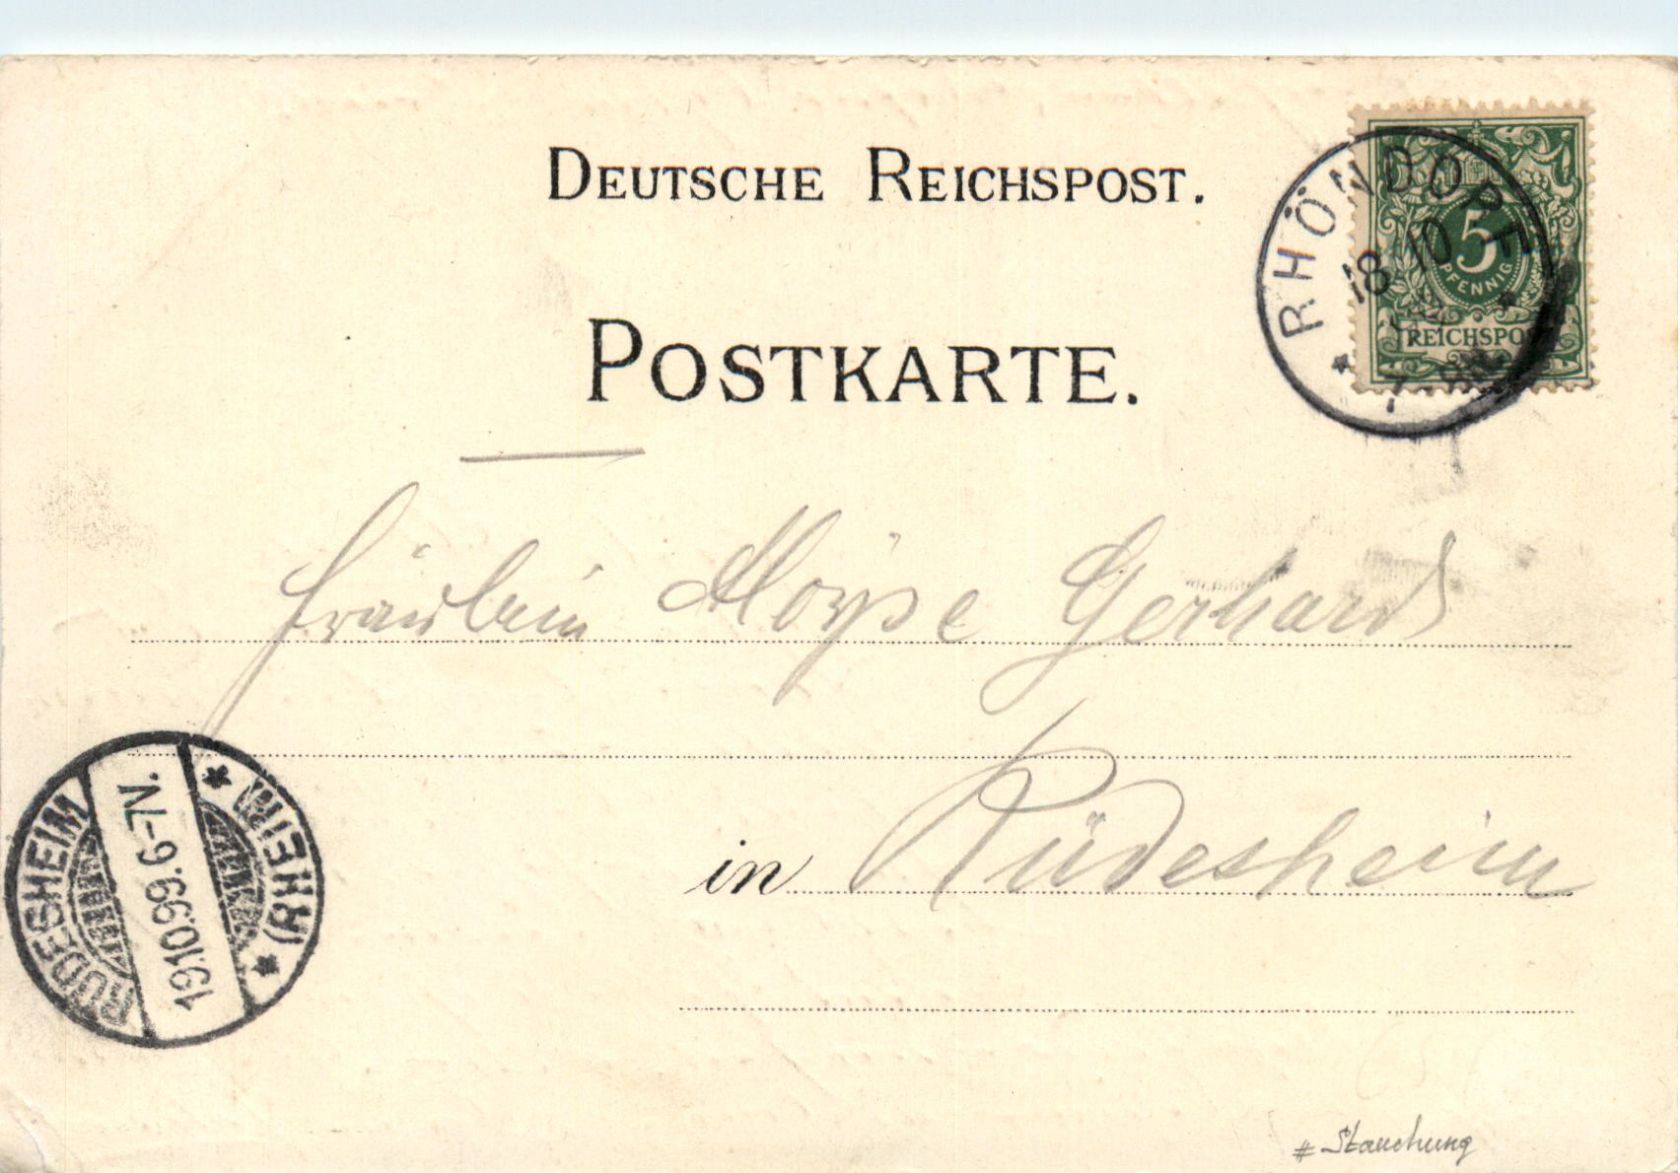 DEUTSCHE REICHSPOST.
RHÖNDORF
18 10
5
PFENNIG
REICHSPOST
POSTKARTE.
Fräulein Gerhard
in Rüdesheim
RÜDESHEIM
19.10.99. 6-7N.
(RHEIN)
# Stauchung